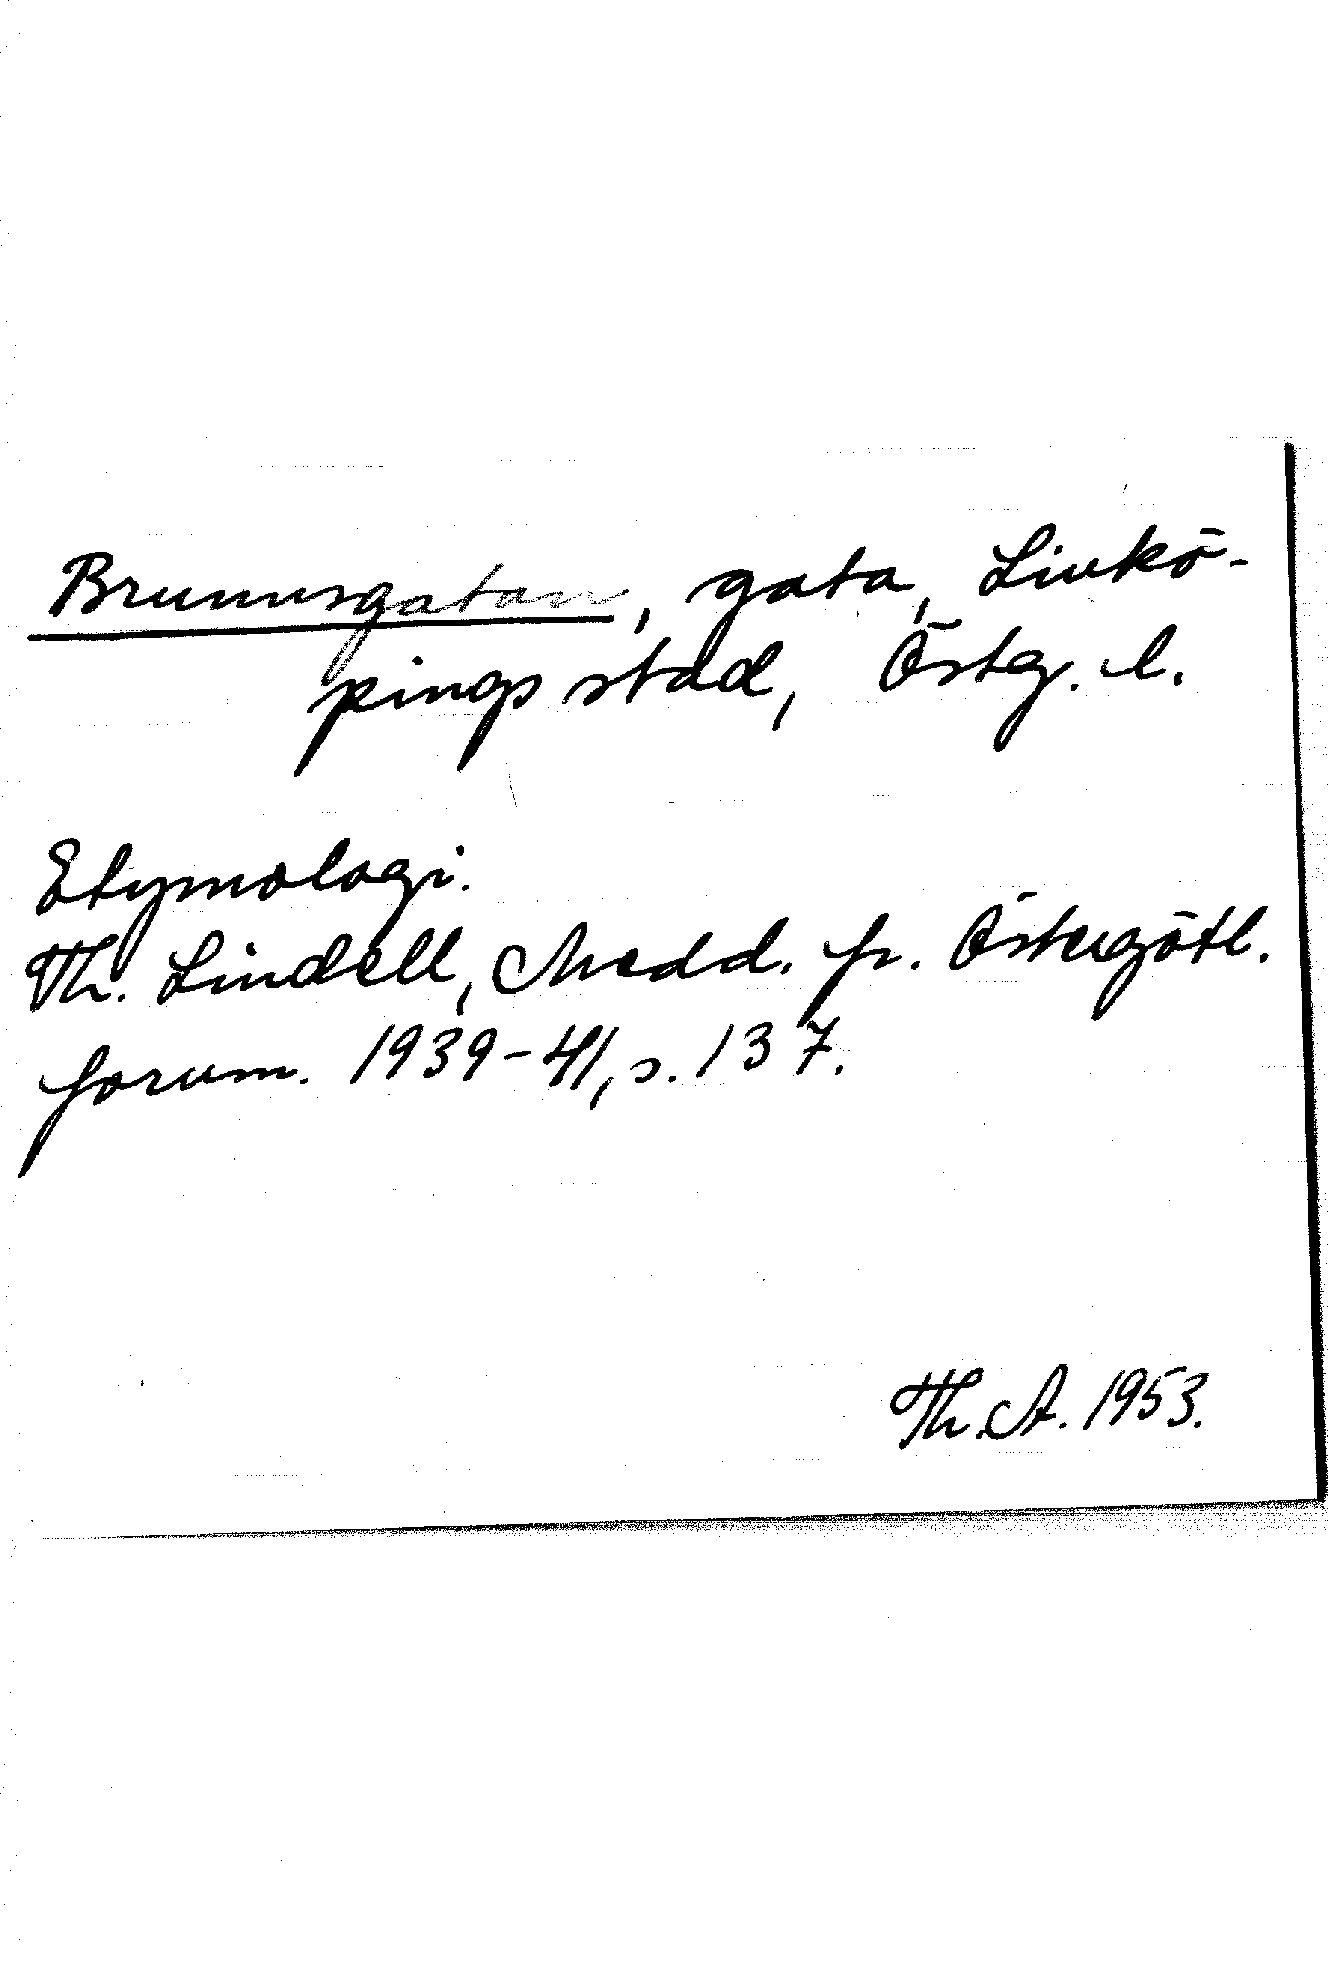 Brunnsgatan, gata, Linkö-
pings stad, Österg. l.
Etymologi.
Th. Lindell, Medd. fr. Östergötl.
fornm. 1939-41, s. 137.
Th. A. 1953.